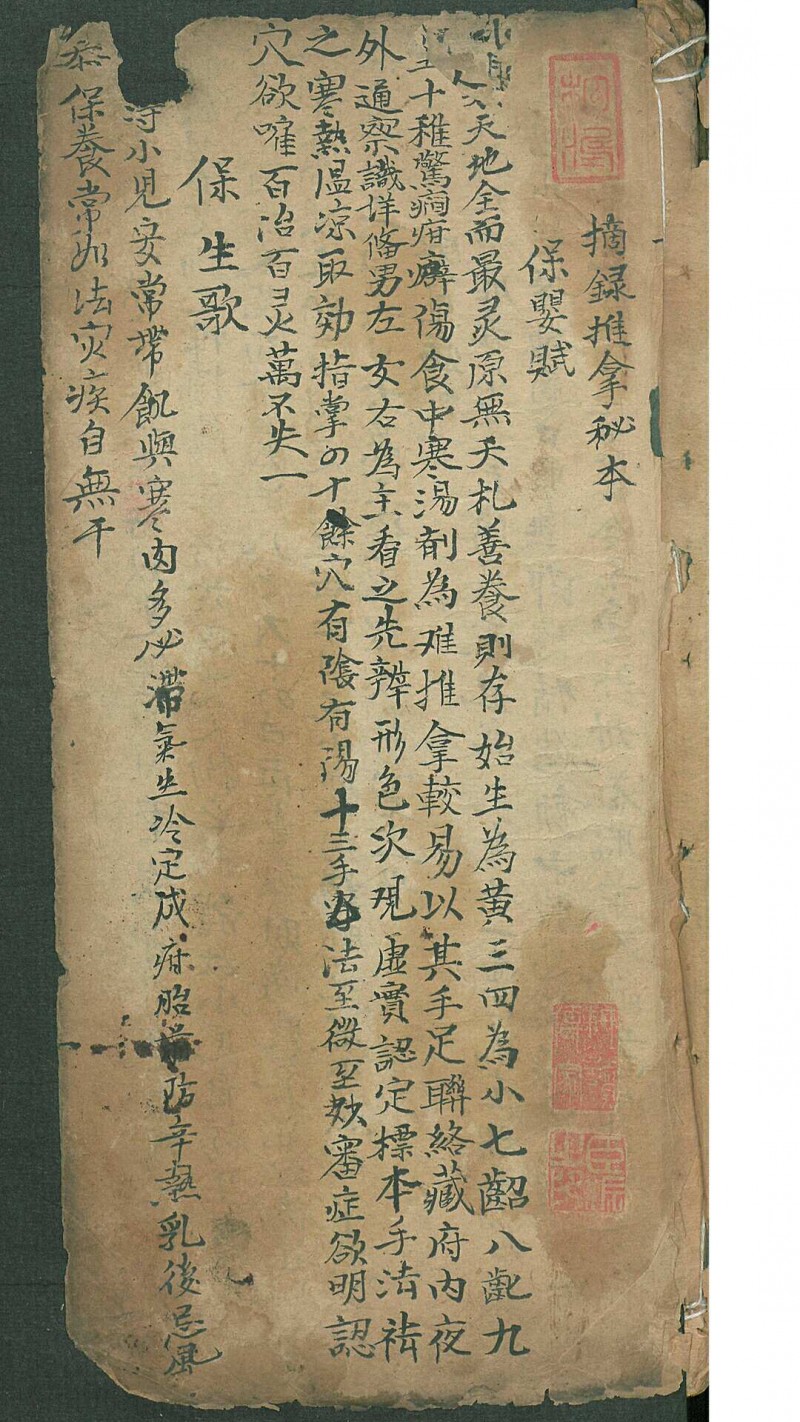 摘録推拿秘本
保嬰賦
人天地全而最灵原無夭札善養則存始生為黃三四為小七齠八齔九
十稚驚癇疳癖傷食中寒湯剤為难推拿較易以其手足聯絡藏府内夜
外通察識详俻男左女右為主看之先辨形色次現虚實認定標本手法祛
之寒熱温凉取効指掌四十餘穴有隂有陽十三手法至微至妙審症欲明認
穴欲確百治百灵萬不失一
保生歌
小児安常带飢與寒肉多必滯氣生冷定成疳胎前防辛熱乳後忌風
保養常如法灾疾自無干